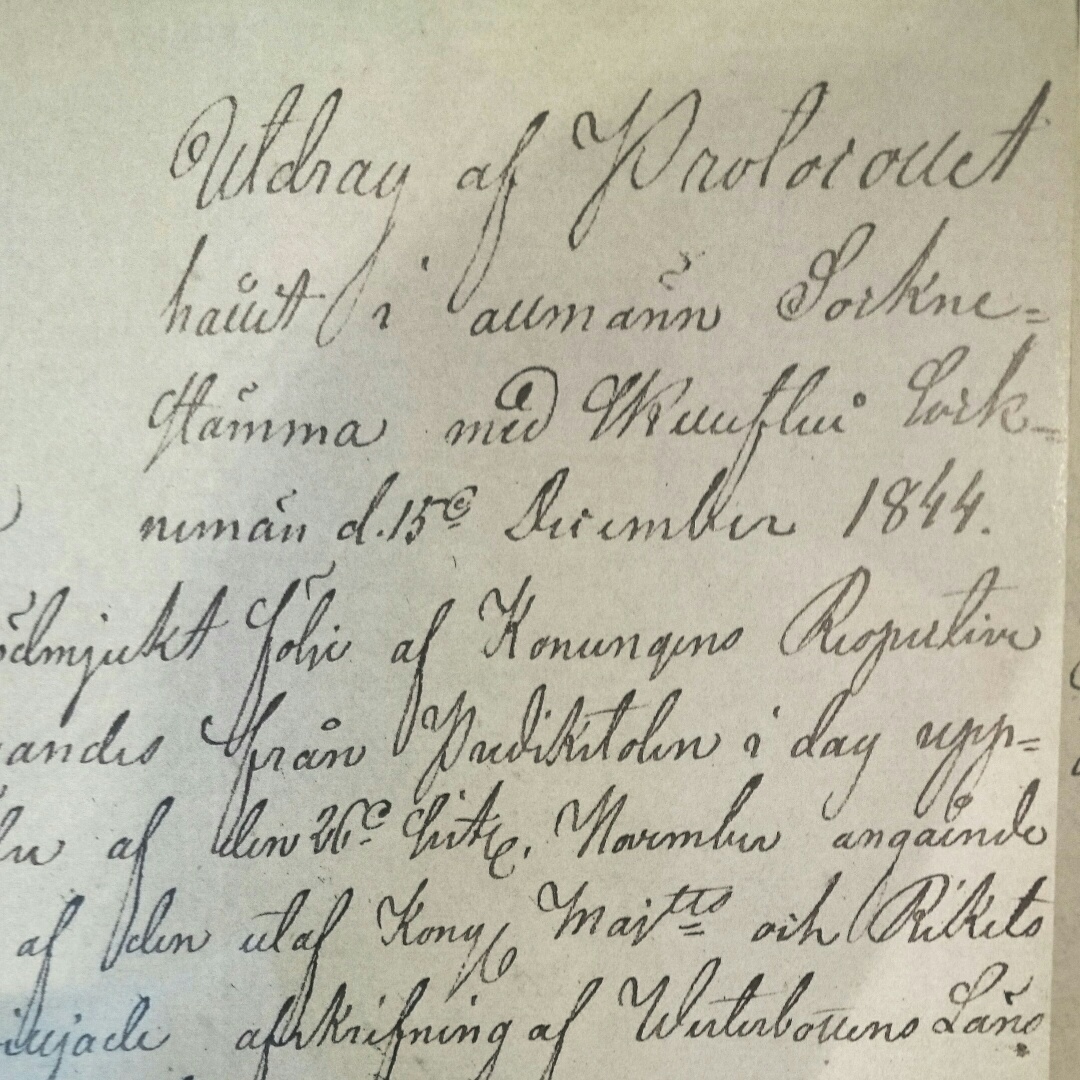 Utdrag af Protocollet
hållit i allmänn Sockne-
stämma med Skellefteå Sock-
nemän d. 15e December 1844.
ödmjukt följe af Konungens Respective
andes från Predikstolen i dag upp-
af den 26e sistl. November angående
af den utaf Kongl Majtts och Rikets
afskrifning af Westerbottens Läns